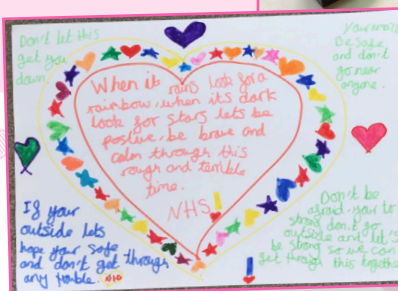 Don't let this
get you
down.
Your
Be safe
and don't
go near
anyone.
When it rains look for a
rainbow, when its dark
look for stars lets be
postive, be brave and
calm through this
rough and terrible
time.
NHS!
If your
outside lets
hope your safe
and don't get through
any
Don't be
afraid your to
strong don't go
outside and let's
be strong so we can
get through this together